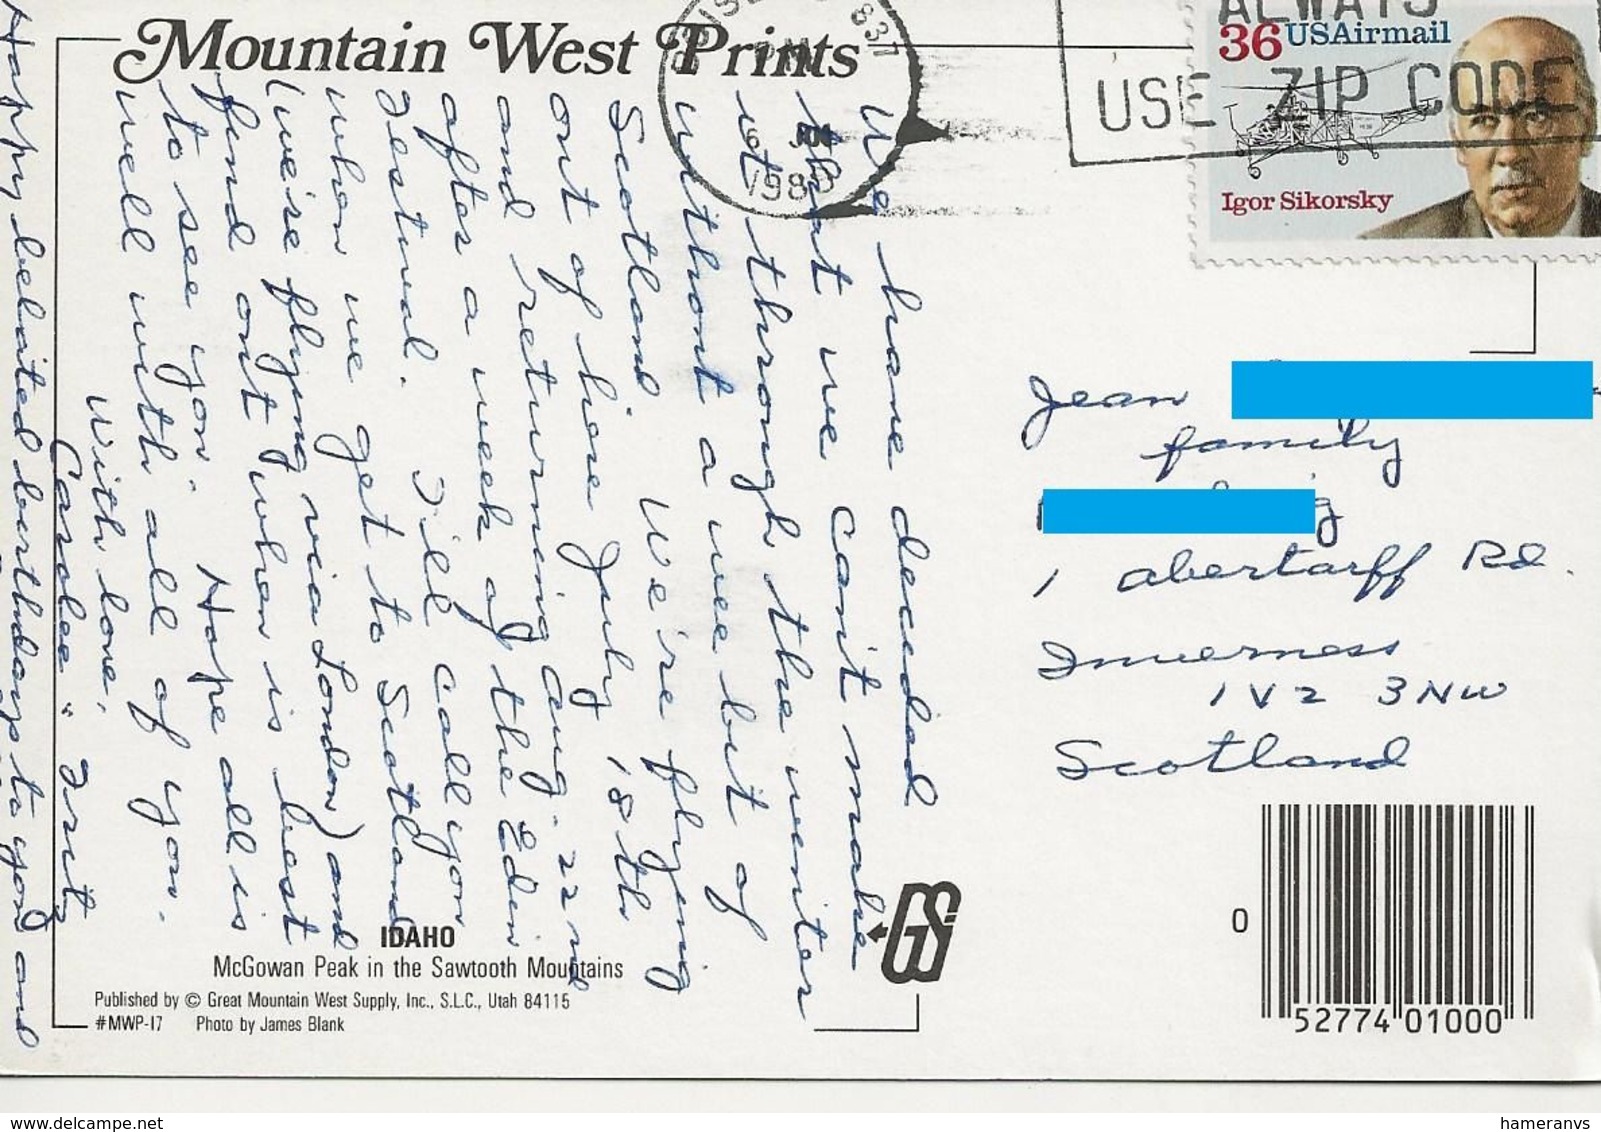 Mountain West Prints
ALWAYS
USE ZIP CODE
36 USAirmail
Igor Sikorsky
837
6
1989
We have decided
that we can't make
it through the winter
without a wee bit of
Scotland. We're flying
out of here July 18th
and returning Aug. 22nd
after a week of the Edin
Festival. I'll call you
when we get to Scotland
(we're flying via London) and
find out when is best
to see you. Hope all is
well with all of you.
With love,
Carolee & Fritz
Happy belated birthday to you and
Jean
family
1 Abertarff Rd.
Inverness
IV2 3NW
Scotland
GS
IDAHO
McGowan Peak in the Sawtooth Mountains
Published by © Great Mountain West Supply, Inc., S.L.C., Utah 84115
#MWP-17 Photo by James Blank
0 52774 01000
delcampe.net
hameranvs